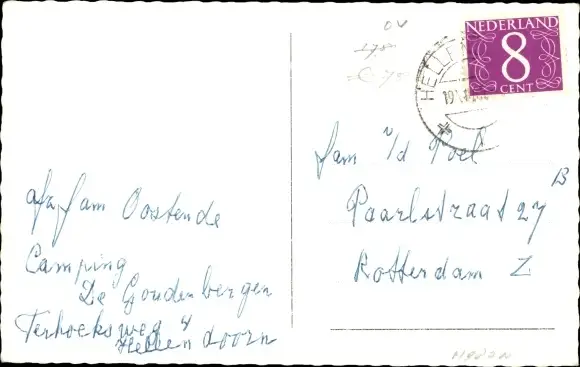 NEDERLAND
8
CENT
HELLE
OV
afz fam Oostende
Camping
De Goudenbergen
Terhoeksweg 4
Hellendoorn
fam v/d Poel
Paarlstraat 27 B
Rotterdam Z